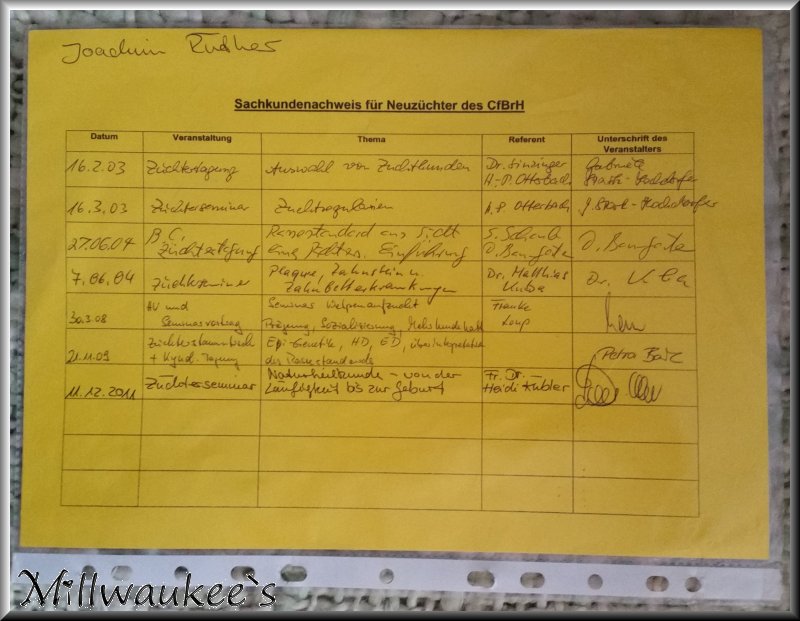 Joachim
Sachkundenachweis für Neuzüchter des CfBrH
Datum Veranstaltung Thema Referent Unterschrift des
Veranstalters
16.2.03 Züchtertagung Auswahl von Zuchthunden Dr. Sinzinger Gabriele
H.-P. Otterbach
16.3.03 Züchterseminar Zuchtregularien H.P. Otterbach
27.06.04 Züchtertagung Rassestandard aus Sicht
eine Richters, Einführung D. Baumgarte
7.06.04 Züchterseminar Plaque, Zahnstein u. Dr. Matthias Dr.
Zahnbetterkrankungen
30.3.08 AV und Seminar Welpenaufzucht Frauke
Seminarvortrag Prägung, Sozialisierung, Loup
21.11.09 Züchterstammtisch Epi-Genetik, HD, ED, Petra
+ Kynol. Tagung des Rassestandards
11.12.2011 Züchterseminar Naturheilkunde – von der Fr. Dr.
Läufigkeit bis zur Geburt Heidi Kübler
Millwaukee`s